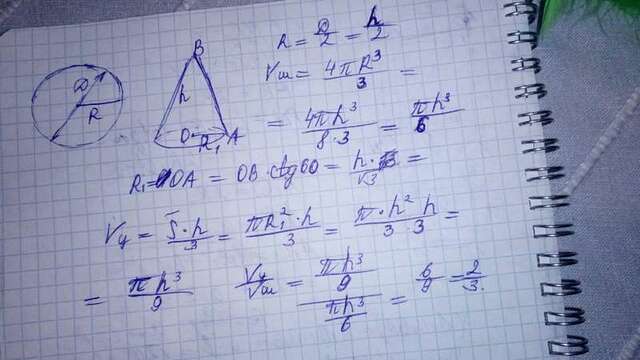 R = D/2 = h/2
B
D
h
R
O
R₁
A
Vш = 4πR³/3 =
= 4πh³/8·3 = πh³/6
R₁ = OA = OB · ctg60 = h/√3 =
Vч = S·h/3 = πR₁²·h/3 = π·h²·h/3·3 =
= πh³/9
Vч/Vш = πh³/9 / πh³/6 = 6/9 = 2/3.